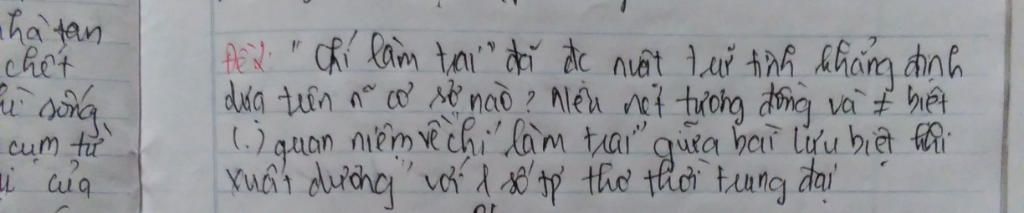 hà tan
chết
sống
cụm từ
của
Đề 2: "Chí làm trai" đã đc nvật trữ tình khẳng định
dựa trên n~ cơ sở nào? Nêu nét tương đồng và ≠ biệt
(.) quan niệm về "chí làm trai" giữa bài "lưu biệt khi
xuất dương" với 1 số tp thơ thời trung đại